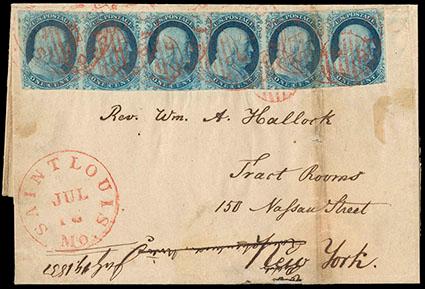 U.S. POSTAGE U.S. POSTAGE U.S. POSTAGE U.S. POSTAGE U.S. POSTAGE U.S. POSTAGE
ONE CENT ONE CENT ONE CENT ONE CENT ONE CENT ONE CENT
Rev. Wm. A. Hallock
Tract Rooms
150 Nassau Street
New York.
SAINT LOUIS
JUL
MO.